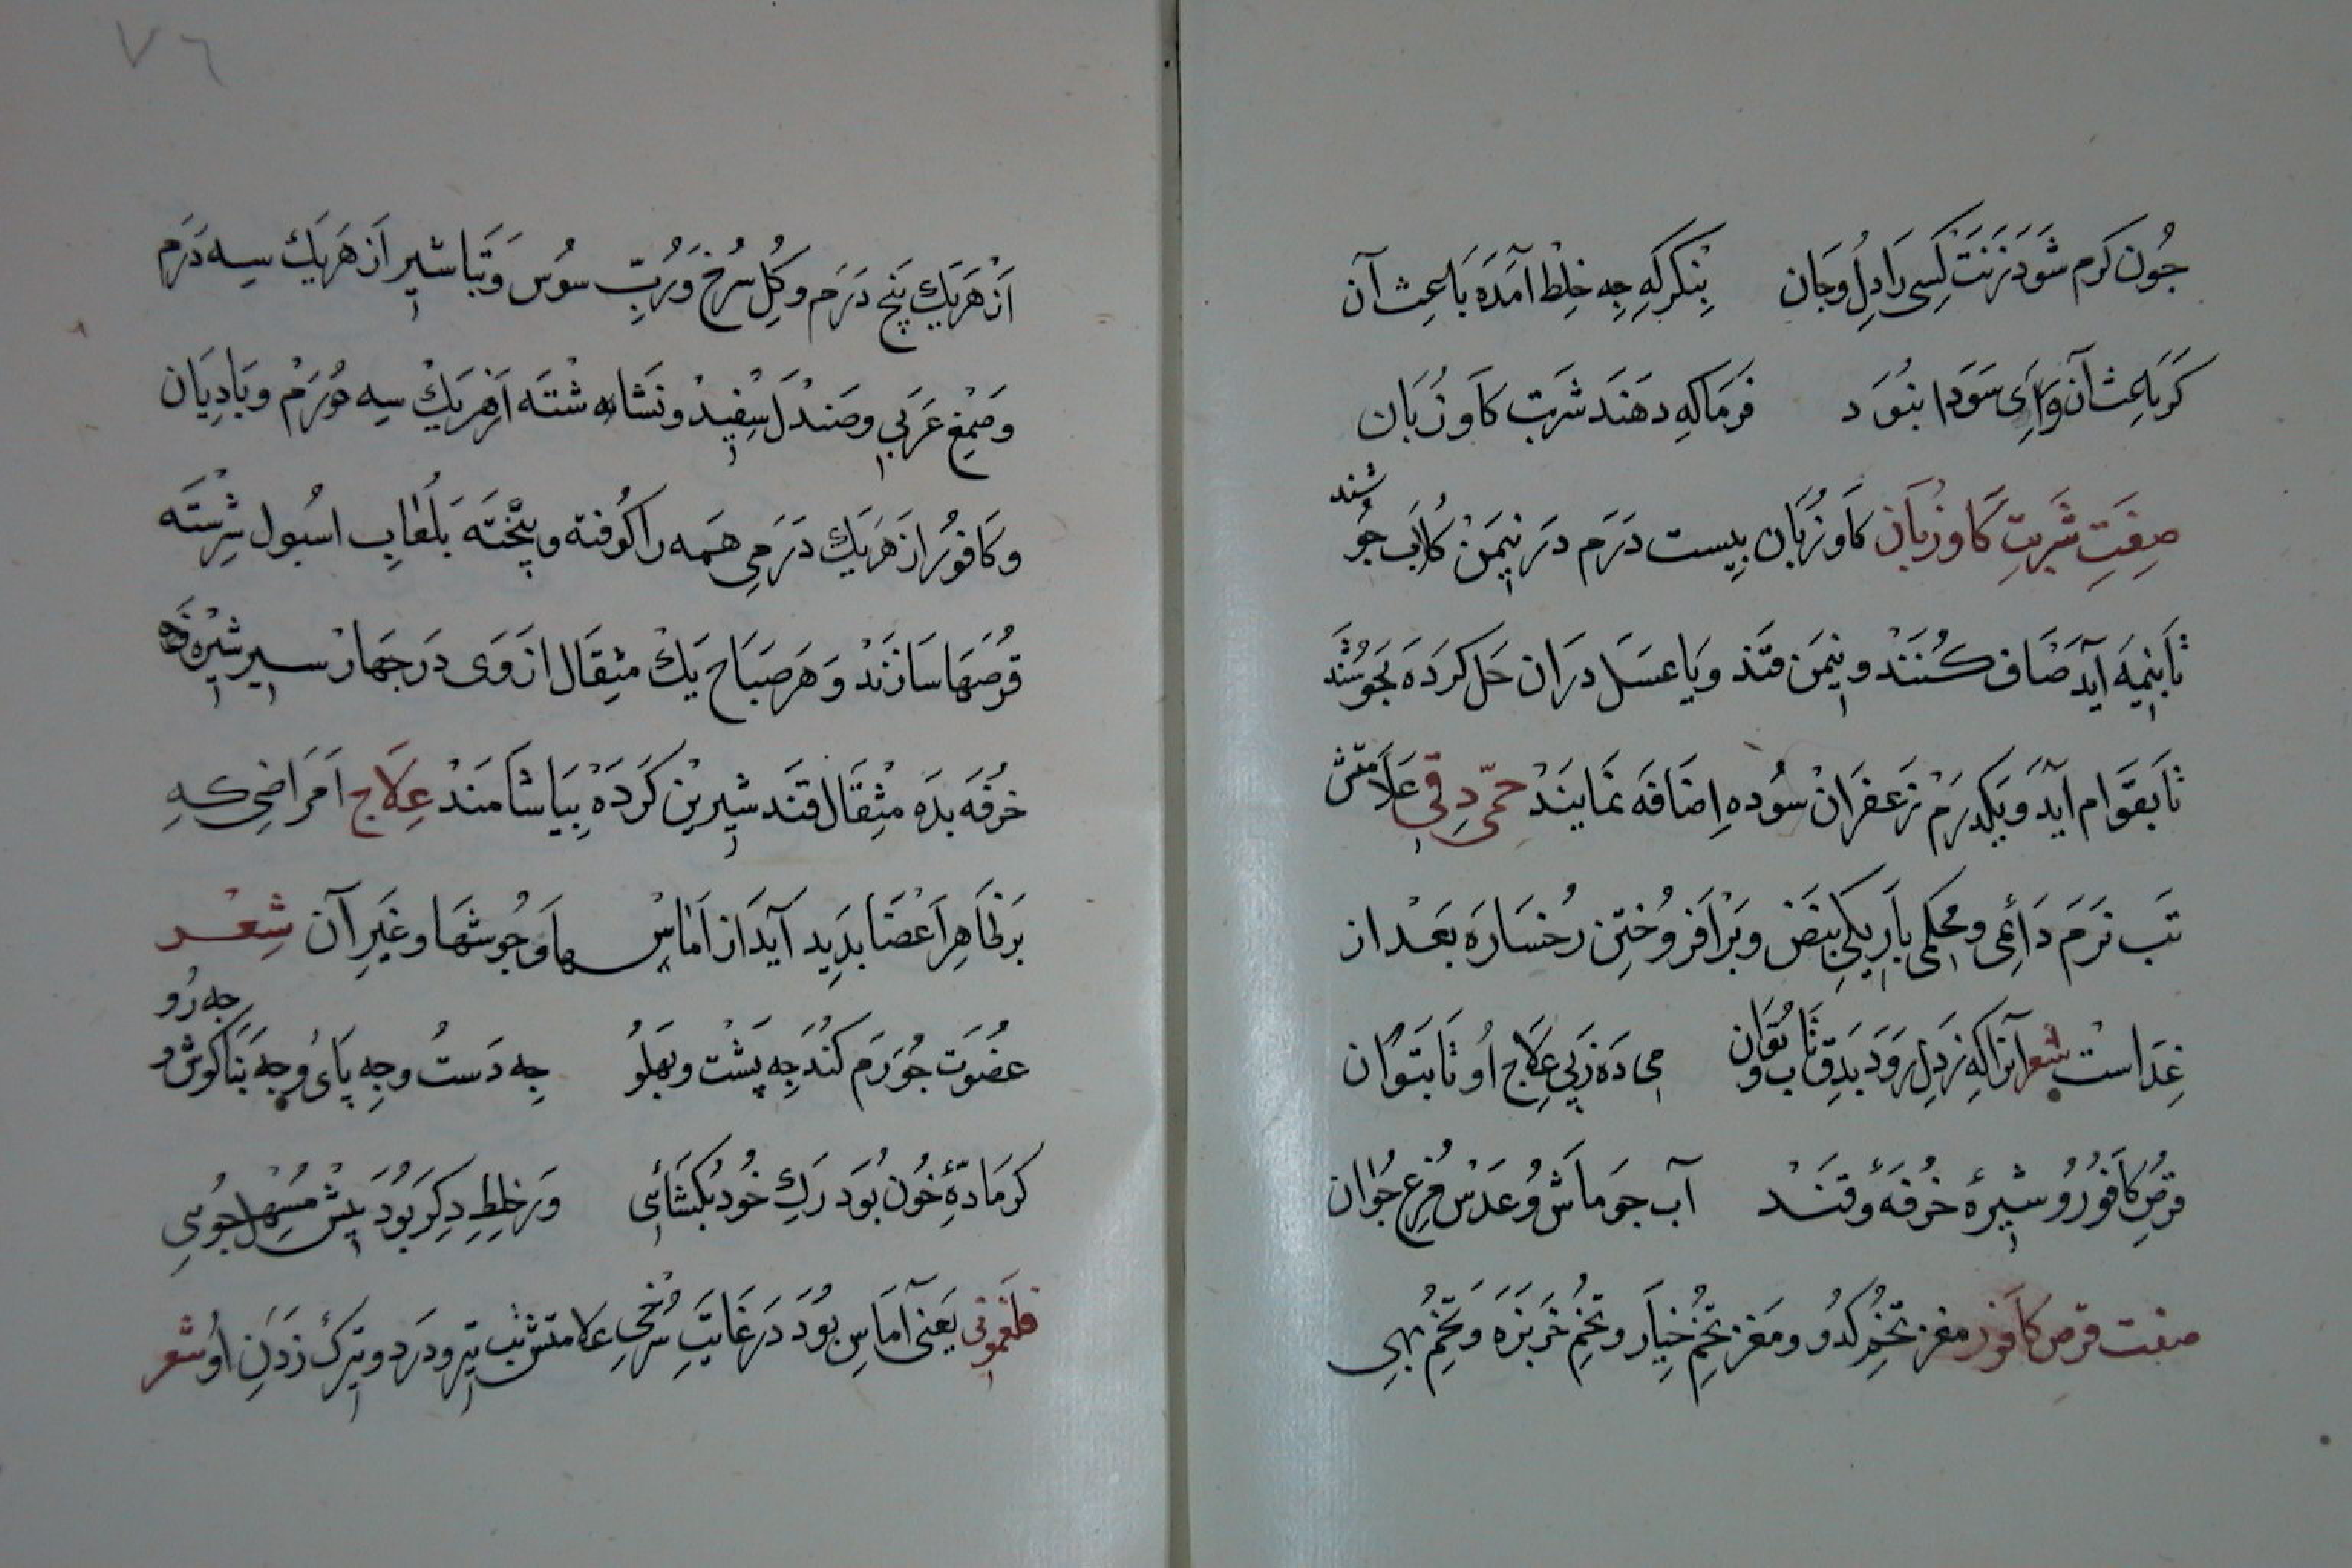 جُون کَرم شَوَد زَنَت کَسِی رَا دِلُ وجَان بِنکَر کِه جِه خِلط آمَدَه بَاعِث آن
کَر بَاعِث آن وَرَای سَودا نبُوَد فَرمَا کِه دهَند شَربَت کَاو زُبَان
صِفَتِ شَربَتِ کَاو زبَان کَاو زُبَان بِیست دَرَم دَر نیمَن کُلاب جُو
شند
تَا بنِیمَه آید صَاف کُنَند و نیمَن قَند وَیا عسَل دَران حَل کَردَه بجَوشَند
تَا بقَوام آید وَیکدرَم زَعفَران سُوده اِضَافَه نمَایند حمّی دِقی عَلامتش
تَب نَرم دَائِمی و محکمی بَاریکی نبض وبَر اَفروُختِن رُخسَارَه بَعد از
غِذَا است شعر آنرا که زدِل رَوَد بَدِق تَاب و تُوَان مِی دَه زَپی عِلَاج اُو تَا بتَوان
قرصِ کَافُور وُ شیرهٔ خُرفَهٔ وُقنَد آب جَو مَاش وُ عدَس مُرغ جُوان
صفت قرص کافور مغز تخم کدُو و مَغز تخم خیَار و تخم خَربزَه وَ تخم بهی
۷٦
اَز هَریَك پَنج دَرَم و کُل سُرخ وَ رُبّ سُوس وَتَبَاشیر اَز هَریَك سِه دَرَم
وصَمغ عَرَبی و صَندَل سِفِید ونَشَاه شُتَه اَز هَریَك سِه دَرَم و بَادِیَان
و کَافوُر از هَریَك دَرَمِی هَمه را کُوفته و پِختَه بَلُعَابِ اسبُول شِرِشتَه
قُرصَهَا سَازَند وَ هَر صبَاح یَك مثقَال از وَی دَر جهَار سیر شیره تخم
خرُفَه بدَه مثقَال قَند شیرین کَردَه بِیَاشَامَند عِلَاج اَمرَاضی کِه
بَر ظَاهِر اَعضَا بَدِید آید اَز اَمَاس ها وَ جُوشهَا و غَیر آن شِعر
جه رُو
عضُوَت جُو وَرَم کُند جِه پَشت و بَهلُو جِه دَست وجِه پَای وُ جِه بَنَاکُوش و
کَر مَادّهٔ خُون بُوَد رَكِ خُود بکشَائی وَر خلِطِ دِکَر بوُد پیش مُسهل جوُیی
فلغمونی یَعنی آمَاس بُوَد دَر غَایَتِ سُرخی علامتش تب تیز و درَد و تیرك زدَنِ اُو شعر